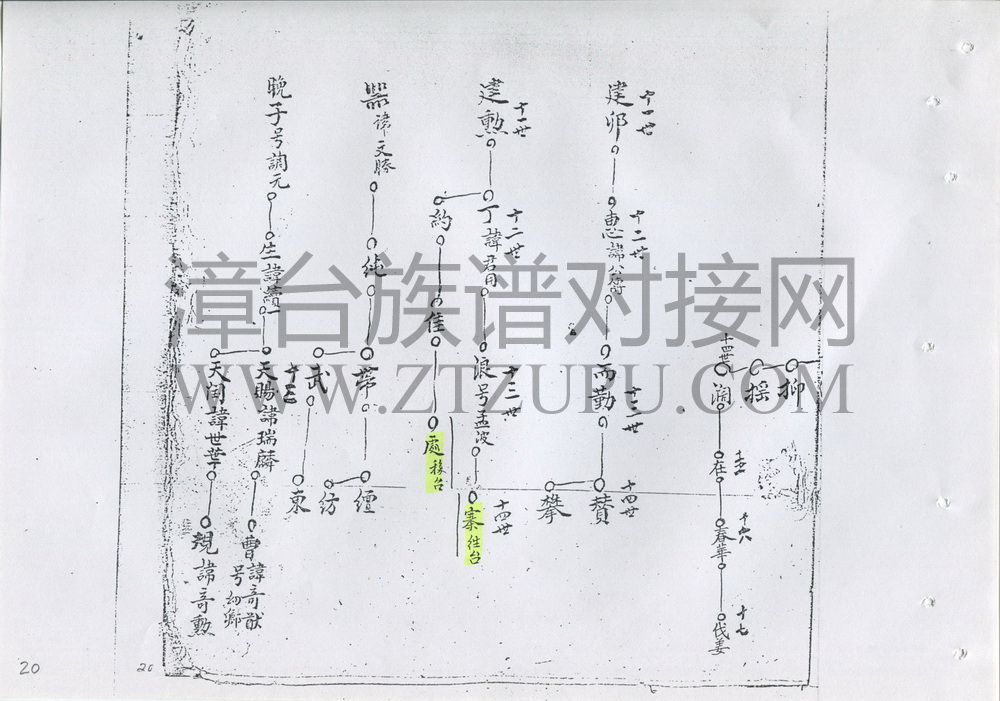 抑
揺
十四世
濶
在
十五
春華
十六
十七
十一世
建卯
十二世
惠諱
十三世
而勤
十四世
賛
攀
十一世
建勲
十二世
丁諱君用
約
十三世
浪号孟波
佳
十四世
寨往台
處移台
諱文勝
純
帯
武
纏
紡
東
晩子号調元
生諱績
十三
天賜諱瑞麟
天開諱世華
曹諱奇猷
号初卿
規諱奇勲
漳台族谱对接网
WWW.ZTZUPU.COM
20
20